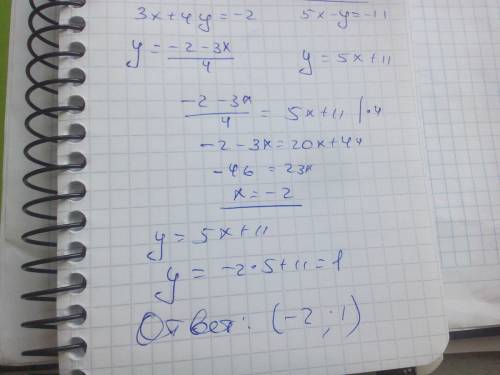 3x+4y=-2 5x-y=-11
y=\frac{-2-3x}{4} y=5x+11
\frac{-2-3x}{4}=5x+11 |·4
-2-3x=20x+44
-46=23x
x=-2
y=5x+11
y=-2·5+11=1
Ответ: (-2;1)